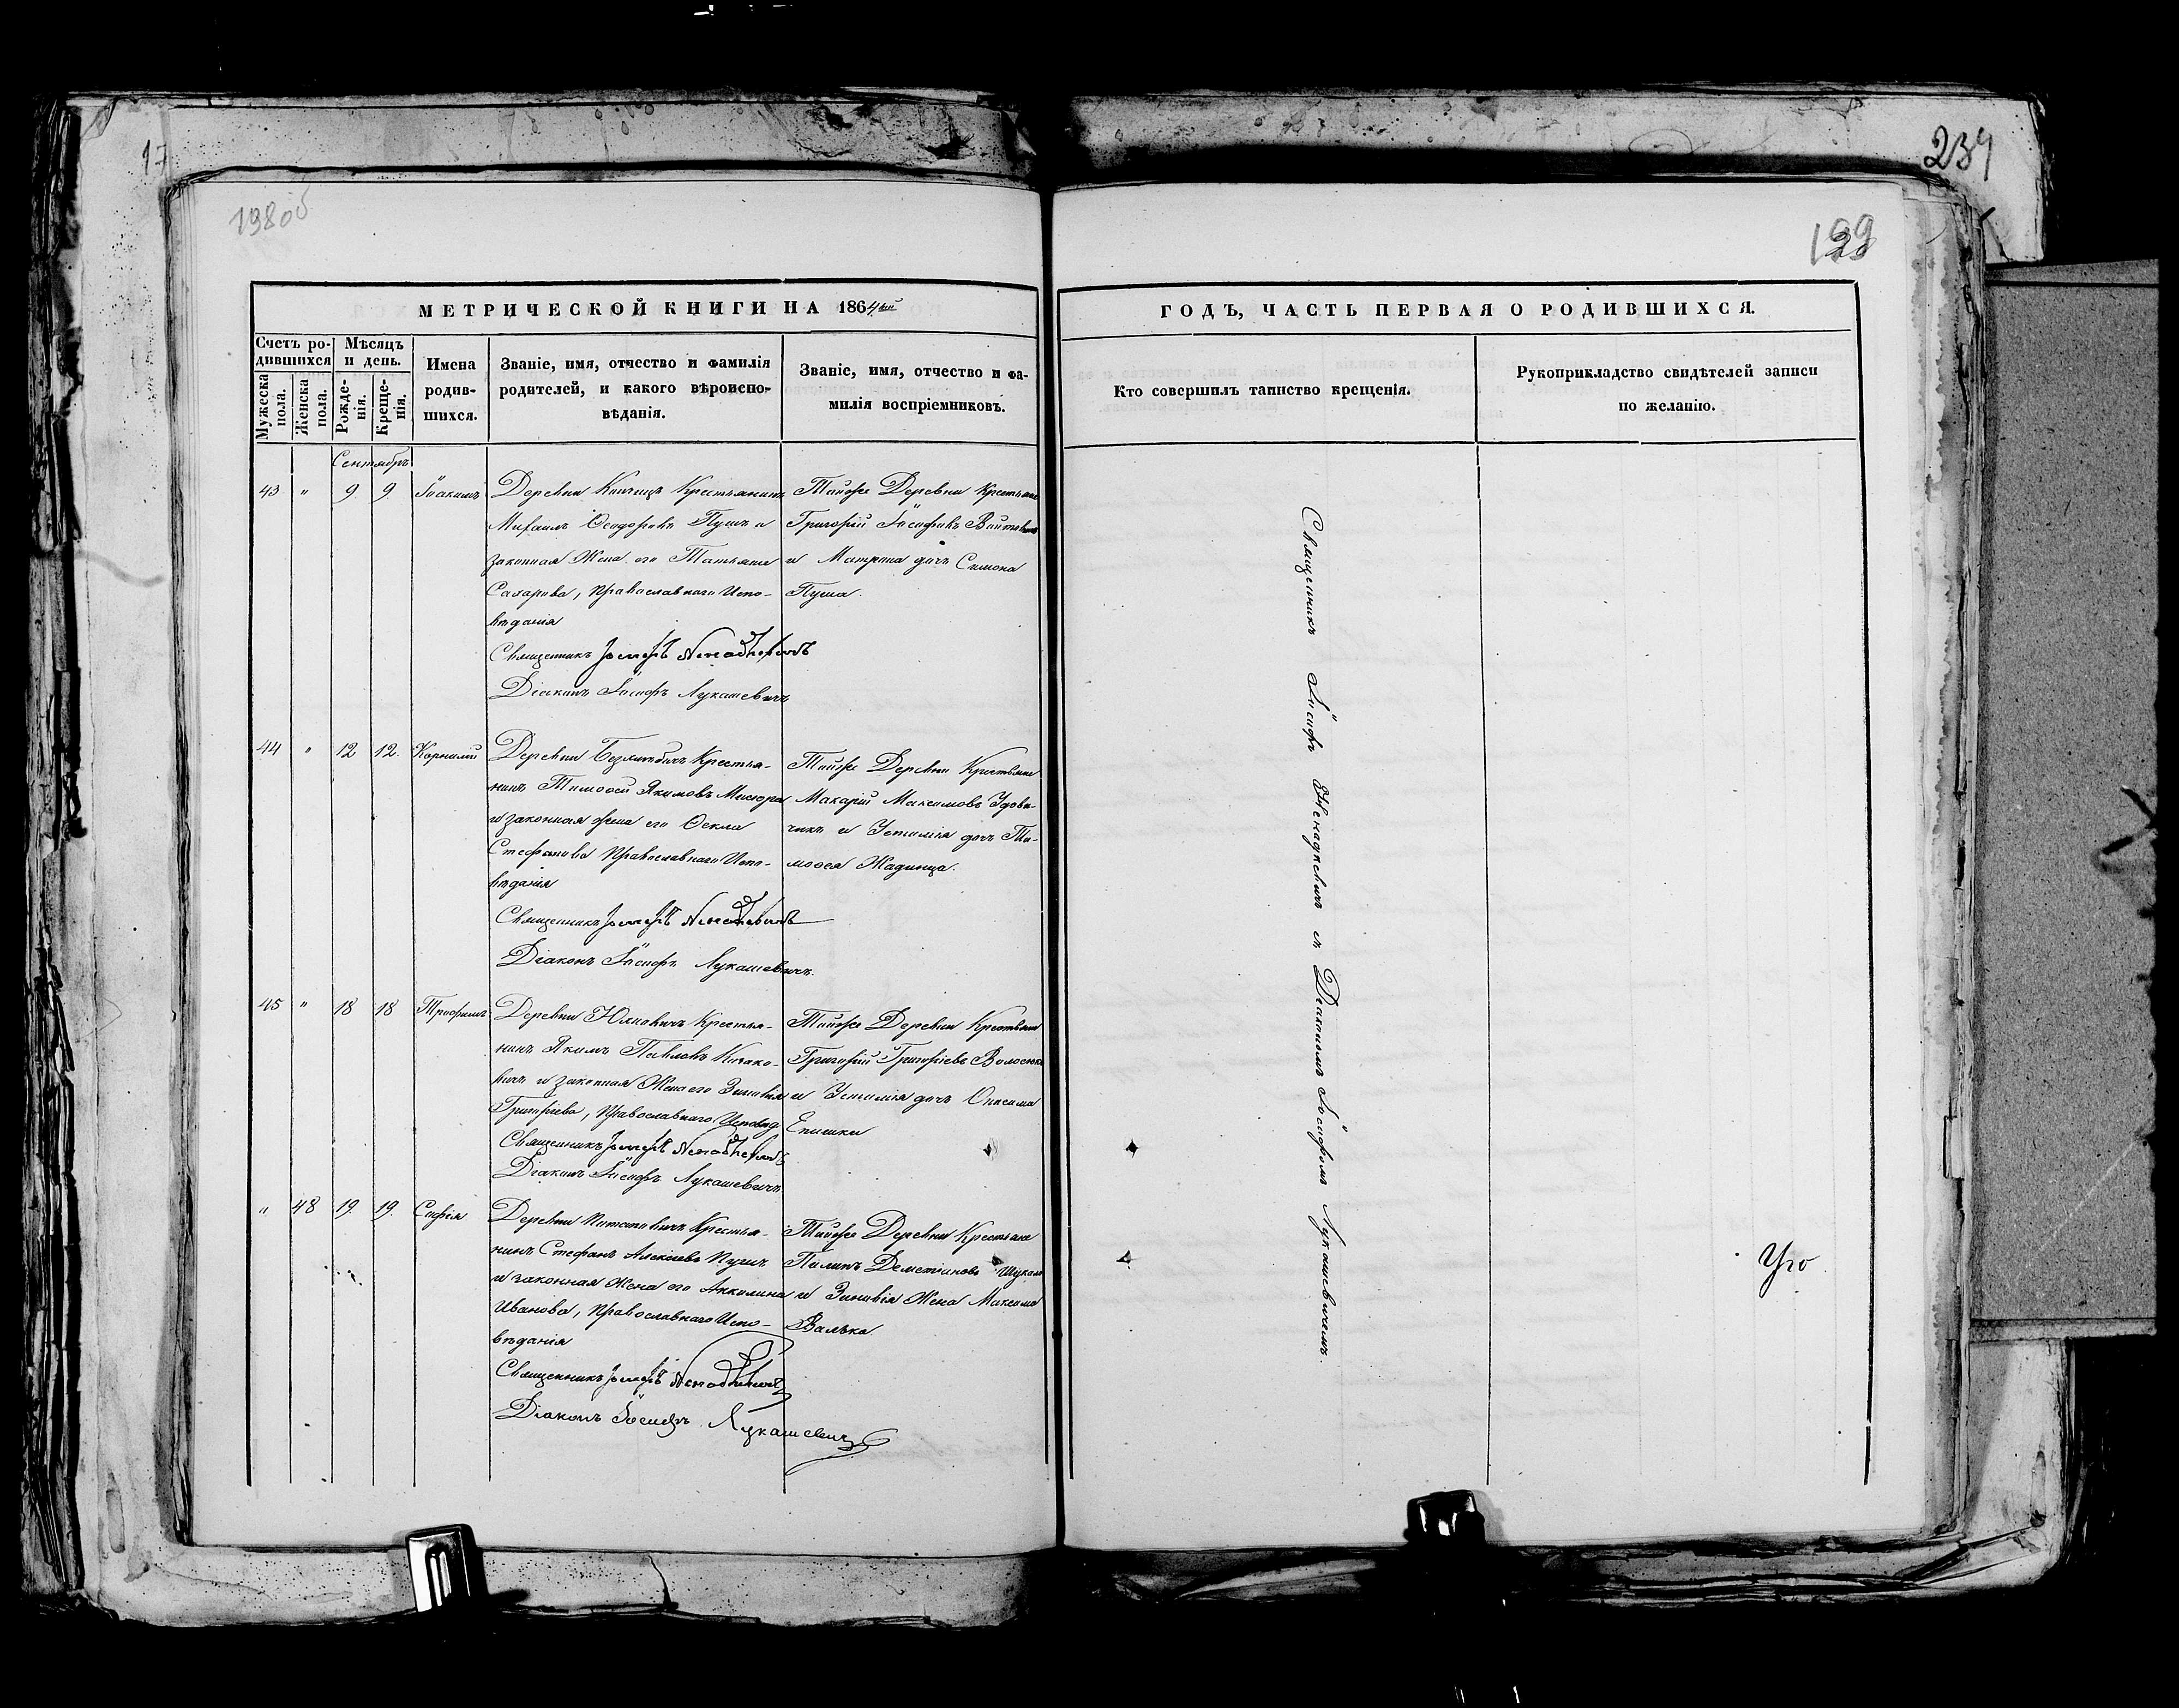 17
234
198об
199
МЕТРИЧЕСКОЙ КНИГИ НА 1864й
ГОДЪ, ЧАСТЬ ПЕРВАЯ О РОДИВШИХСЯ.
Счетъ ро-
дившихся
Мужеска
пола.
Женска
пола.
Мѣсяцъ
и день.
Рожде-
нія.
Креще-
нія.
Имена
родив-
шихся.
Званіе, имя, отчество и фамилія
родителей, и какого вѣроиспо-
вѣданія.
Званіе, имя, отчество и фа-
милія воспріемниковъ.
Кто совершилъ таинство крещенія.
Рукоприкладство свидѣтелей записи
по желанію.
Сентябрь
43 " 9 9 Іоакимъ
Деревни Крестьянинъ
Михаилъ Ѳеодоровъ Пушъ и
законная Жена его Татьяна
Сахарова, Православнаго Испо-
вѣданія
Священникъ Іосифъ Ненадкевичъ
Діаконъ Іосифъ Лукашевичъ
Тойже Деревни Крестьяне
Григорій Іосифовъ
и Матрона дочь Симона
Пуша.
44 " 12 12. Корнилій
Деревни Крестья-
нинъ Тимоѳей Якимовъ Мисюра
и законная жена его Ѳекла
Стефанова Православнаго Испо-
вѣданія
Священникъ Іосифъ Ненадкевичъ
Діаконъ Іосифъ Лукашевичъ.
Тойже Деревни Крестьяне
Макарій Максимовъ Удови-
чикъ и Устинія дочь Ти-
моѳея Жадинца.
45 " 18 18 Трофимъ
Деревни Юлковичъ Крестья-
нинъ Якимъ Павловъ Казако-
вичъ и законная Жена его Зиновія
Григоріева, Православнаго Исповѣд
Священникъ Іосифъ Ненадкевичъ
Діаконъ Іосифъ Лукашевичъ.
Тойже Деревни Крестьяне
Григорій Григоріевъ
и Устинія дочь Онисима
Епишки
" 48 19. 19. Софія
Деревни Крестья-
нинъ Стефанъ Алексіевъ Пушъ
и законная Жена его Акилина
Иванова, Православнаго Испо-
вѣданія
Священникъ Іосифъ Ненадкевичъ
Діаконъ Іосифъ Лукашевичъ
Тойже Деревни Крестьяне
Пилипъ Деметіановъ
и Зиновія Жена Максима
Валька
Священникъ Іосифъ Ненадкевичъ съ Діакономъ Іосифомъ Лукашевичемъ.